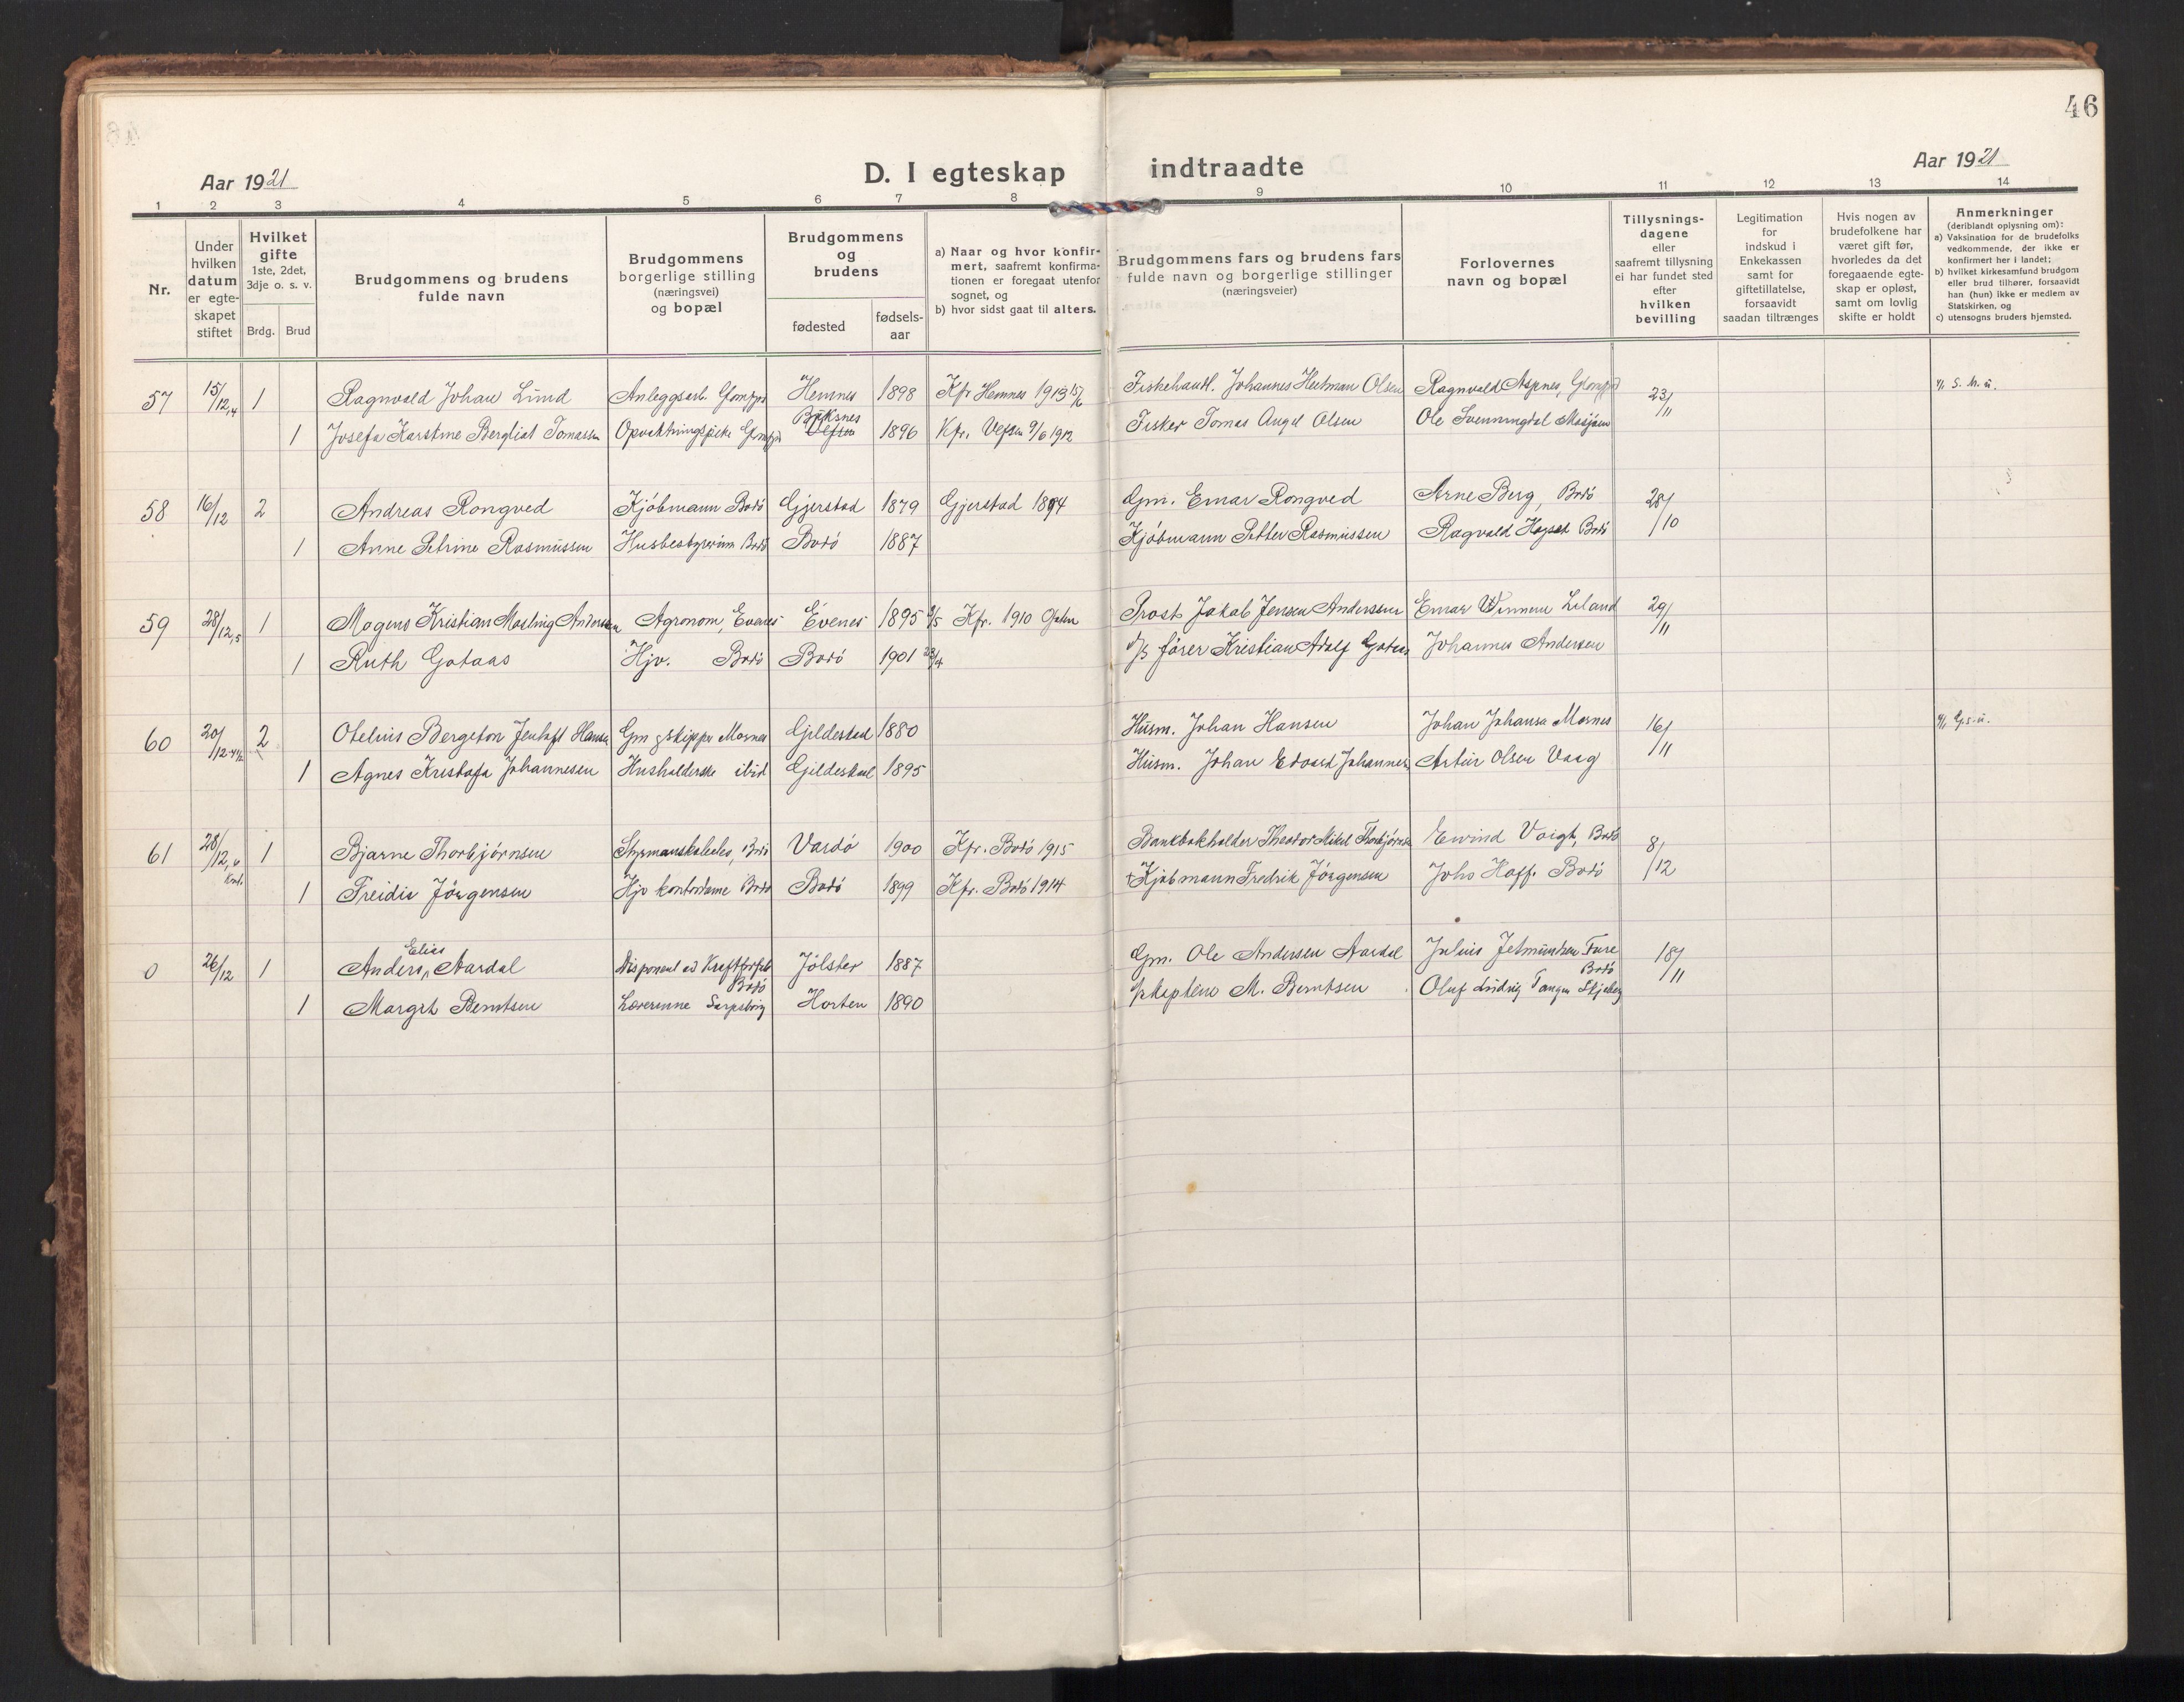 46
Aar 1921
D. I egteskap indtraadte
Aar 1921
1 2 3 4 5 6 7 8 9 10 11 12 13 14
Nr.
Under hvilken datum er egteskapet stiftet
Hvilket gifte 1ste, 2det, 3dje o. s. v.
Brdg. Brud
Brudgommens og brudens fulde navn
Brudgommens borgerlige stilling (næringsvei) og bopæl
Brudgommens og brudens
fødested
fødsels-aar
a) Naar og hvor konfir-
mert, saafremt konfirma-
tionen er foregaat utenfor
sognet, og
b) hvor sidst gaat til alters.
Brudgommens fars og brudens fars
fulde navn og borgerlige stillinger
(næringsveier)
Forlovernes
navn og bopæl
Tillysnings-
dagene
eller
saafremt tillysning
ei har fundet sted
efter
hvilken
bevilling
Legitimation
for
indskud i
Enkekassen
samt for
giftetillatelse,
forsaavidt
saadan tiltrænges
Hvis nogen av
brudefolkene har
været gift før,
hvorledes da det
foregaaende egte-
skap er opløst,
samt om lovlig
skifte er holdt
Anmerkninger
(deriblandt oplysning om):
a) Vaksination for de brudefolks
vedkommende, der ikke er
konfirmert her i landet:
b) hvilket kirkesamfund brudgom
eller brud tilhører, forsaavidt
han (hun) ikke er medlem av
Statskirken, og
c) utensogns bruders hjemsted.
57 15/12,4 1 Ragnvald Johan Lund Anleggsarb. Glomfjo Hemnes 1898 Kfr Hemnes 1913 15/6 Fiskehandl. Johannes Heitman Olsen Ragnvald Aspnes, Glomfjo 23/11
1 Josefa Karstine Bergliot Tomassen Opvartningspike Glomfjo Buksnes Vefsn 1896 Kfr. Vefsn 9/6 1912 Fisker Tomas Angel Olsen Ole Svenningdal Mosjøen
58 16/12 2 Andreas Rongved Kjöbmann Bodö Gjerstad 1879 Gjerstad 1894 Gm. Einar Rongved Arne Berg, Bodö 28/10
1 Anne Petrine Rasmussen Husbestyrerinne Bodö Bodö 1887 Kjöbmann Petter Rasmussen Ragvald Bodö
59 28/12,5 1 Mogens Kristian Anderssen Agronom, Evenes Evenes 1895 9/5 Kfr. 1910 Ofoten Prost Jakob Jensen Anderssen Einar Leland 29/11
1 Ruth Gotaas Hjv. Bodö Bodö 1901 23/4 d/s förer Kristian Adolf Gotaas Johannes Andersen
60 20/12 4½ 2 Otelius Bergeton Jentoft Hansen Gm & skipper Mornes Gildeskaal 1880 Husm. Johan Hansen Johan Johansa Mornes 16/11
1 Agnes Kristofa Johannesen Husholderske ibid Gildeskaal 1895 Husm. Johan Edvard Johannesen Artur Olsen Vaag
61 28/12,6 1 Bjarne Thorbjørnsen Styrmanskoleelev, Bodö Vardö 1900 Kfr. Bodö 1915 Bankbokholder Theodor Mikal Thorbjørnsen Eivind Voigt, Bodö 8/12
1 Freidis Jörgensen Hjv kontordame Bodö Bodö 1899 Kfr. Bodö 1914 † Kjöbmann Fredrik Jörgensen Johs Hoff. Bodö
0 26/12 1 Anders Elias Aardal Disponent Bodö Jölster 1887 Gm. Ole Andersen Aardal Julius Jetmundsen Fure Bodö 18/11
1 Margit Berntsen Lærerinne Sarpsborg Horten 1890 M. Berntsen Oluf Ludvig Tangen Skjeberg